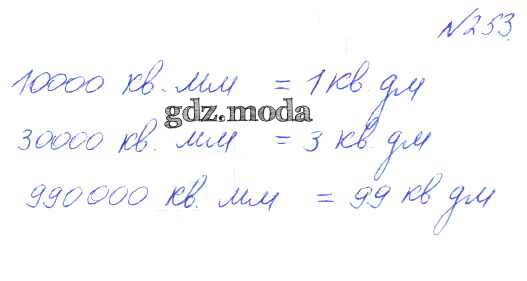 №253.
10000 кв. мм = 1 кв. дм
gdz.moda
30000 кв. мм = 3 кв. дм
990000 кв. мм = 99 кв дм